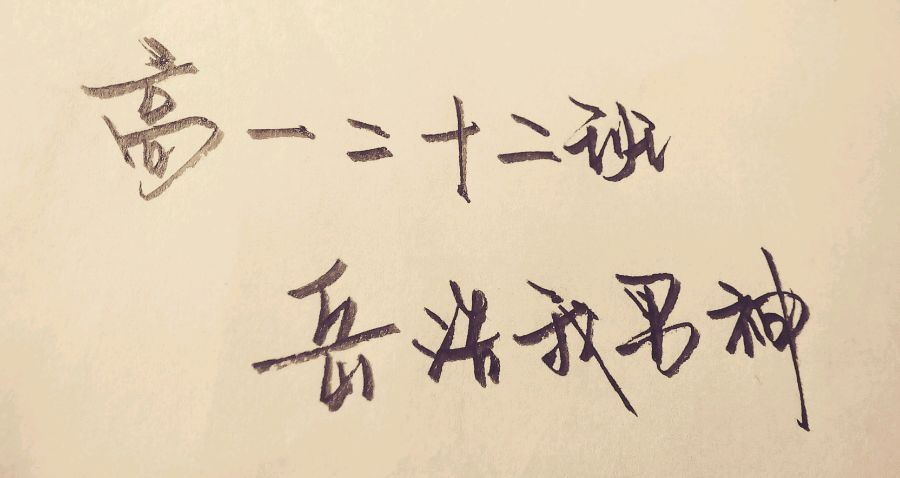 高一二十二班
岳浩我男神